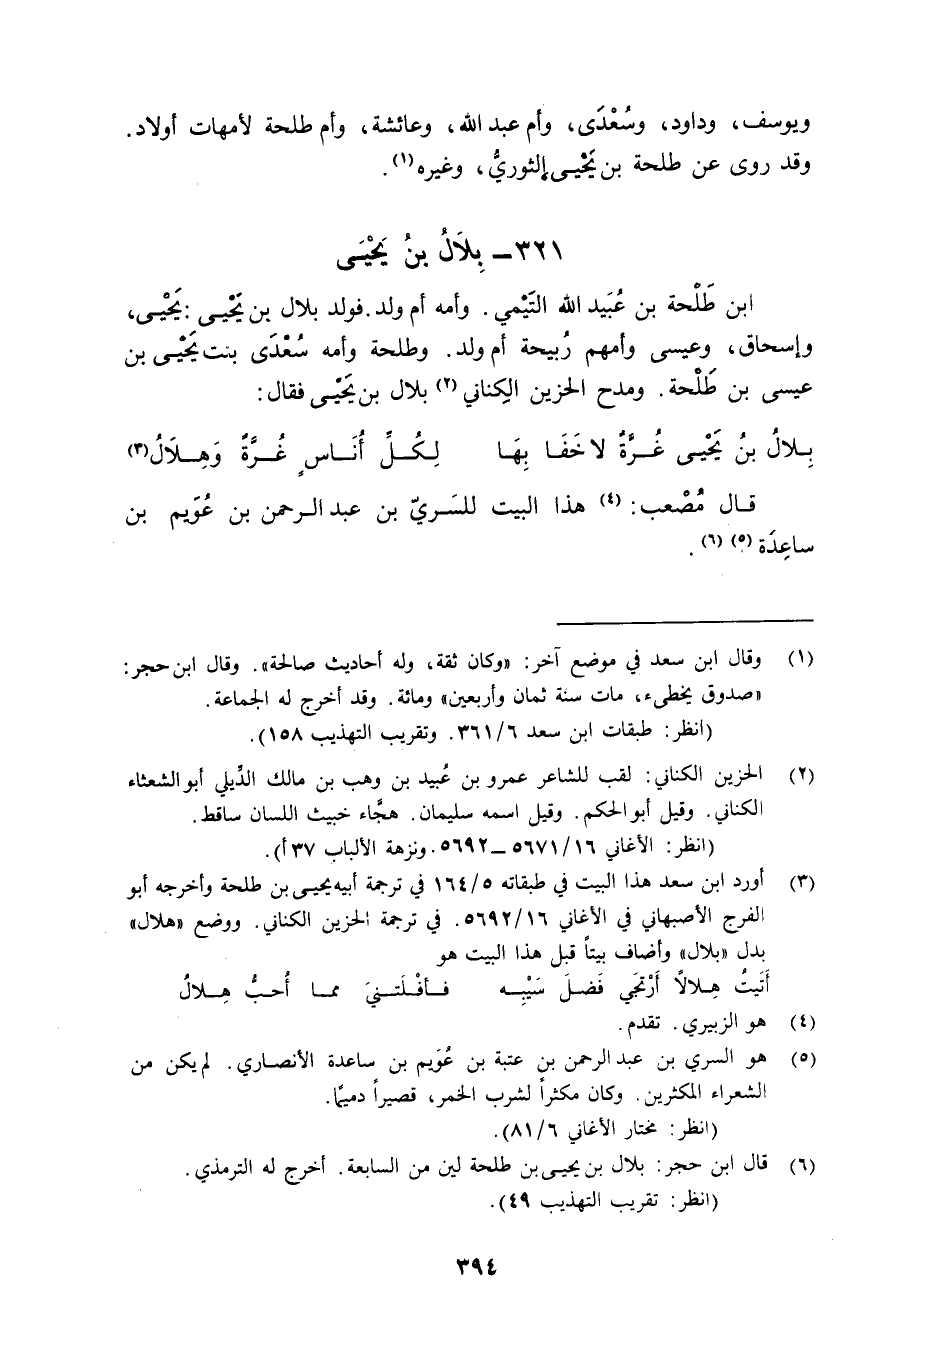 ويوسف، وداود، وسُعْدَى، وأم عبد الله، وعائشة، وأم طلحة لأمهات أولاد.
وقد روى عن طلحة بن يَحْيى الثوريُّ، وغيره(١).
٣٢١ـ بِلاَلُ بنُ يَحْيَى
ابن طَلْحة بن عُبَيد الله التَيْمي. وأمه أم ولد. فولد بلال بن يَحْيى: يَحْيى،
وإسحاق، وعيسى وأمهم رُبيحة أم ولد. وطلحة وأمه سُعْدَى بنت يَحْيى بن
عيسى بن طَلْحة. ومدح الحزين الكِناني(٢) بلال بن يَحْيى فقال:
بِلالُ بنُ يَحْيى غُرَّةٌ لا خَفَا بِهَا لِكُلِّ أُنَاسٍ غُرَّةٌ وَهِلاَلُ(٣)
قال مُصْعب:(٤) هذا البيت للسَريّ بن عبد الرحمن بن عُوَيم بن
ساعِدَة(٥)(٦).
(١) وقال ابن سعد في موضع آخر: «وكان ثقة، وله أحاديث صالحة». وقال ابن حجر:
«صدوق يخطىء، مات سنة ثمان وأربعين» ومائة. وقد أخرج له الجماعة.
(أنظر: طبقات ابن سعد ٣٦١/٦. وتقريب التهذيب ١٥٨).
(٢) الحزين الكناني: لقب للشاعر عمرو بن عُبيد بن وهب بن مالك الدِّيلي أبو الشعثاء
الكناني. وقيل أبو الحكم. وقيل اسمه سليمان. هجَّاء خبيث اللسان ساقط.
(انظر: الأغاني ٥٦٧١/١٦ ـ ٥٦٩٢. ونزهة الألباب ٣٧ أ).
(٣) أورد ابن سعد هذا البيت في طبقاته ١٦٤/٥ في ترجمة أبيه يحيى بن طلحة وأخرجه أبو
الفرج الأصبهاني في الأغاني ٥٦٩٢/١٦. في ترجمة الحزين الكناني. ووضع «هلال»
بدل «بلال» وأضاف بيتاً قبل هذا البيت هو
أَتَيتُ هِلالاً أرْتَجَي فَضلَ سَيْبِه فأفْلَتنيَ مما أُحبُّ هِلالُ
(٤) هو الزبيري. تقدم.
(٥) هو السري بن عبد الرحمن بن عتبة بن عُوَيم بن ساعدة الأنصاري. لم يكن من
الشعراء المكثرين. وكان مكثراً لشرب الخمر، قصيراً دميمًا.
(انظر: مختار الأغاني ٨١/٦).
(٦) قال ابن حجر: بلال بن يحيى بن طلحة لين من السابعة. أخرج له الترمذي.
(انظر: تقريب التهذيب ٤٩).
٣٩٤